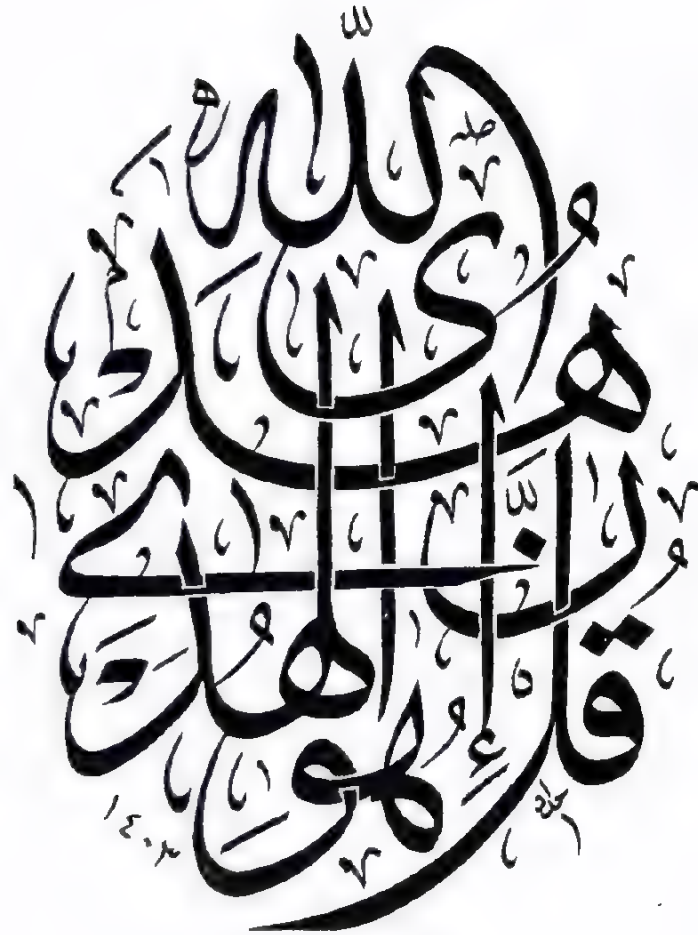 قُلْ إِنَّ هُدَى اللّٰهِ هُوَ الْهُدَى
١٤٠٣